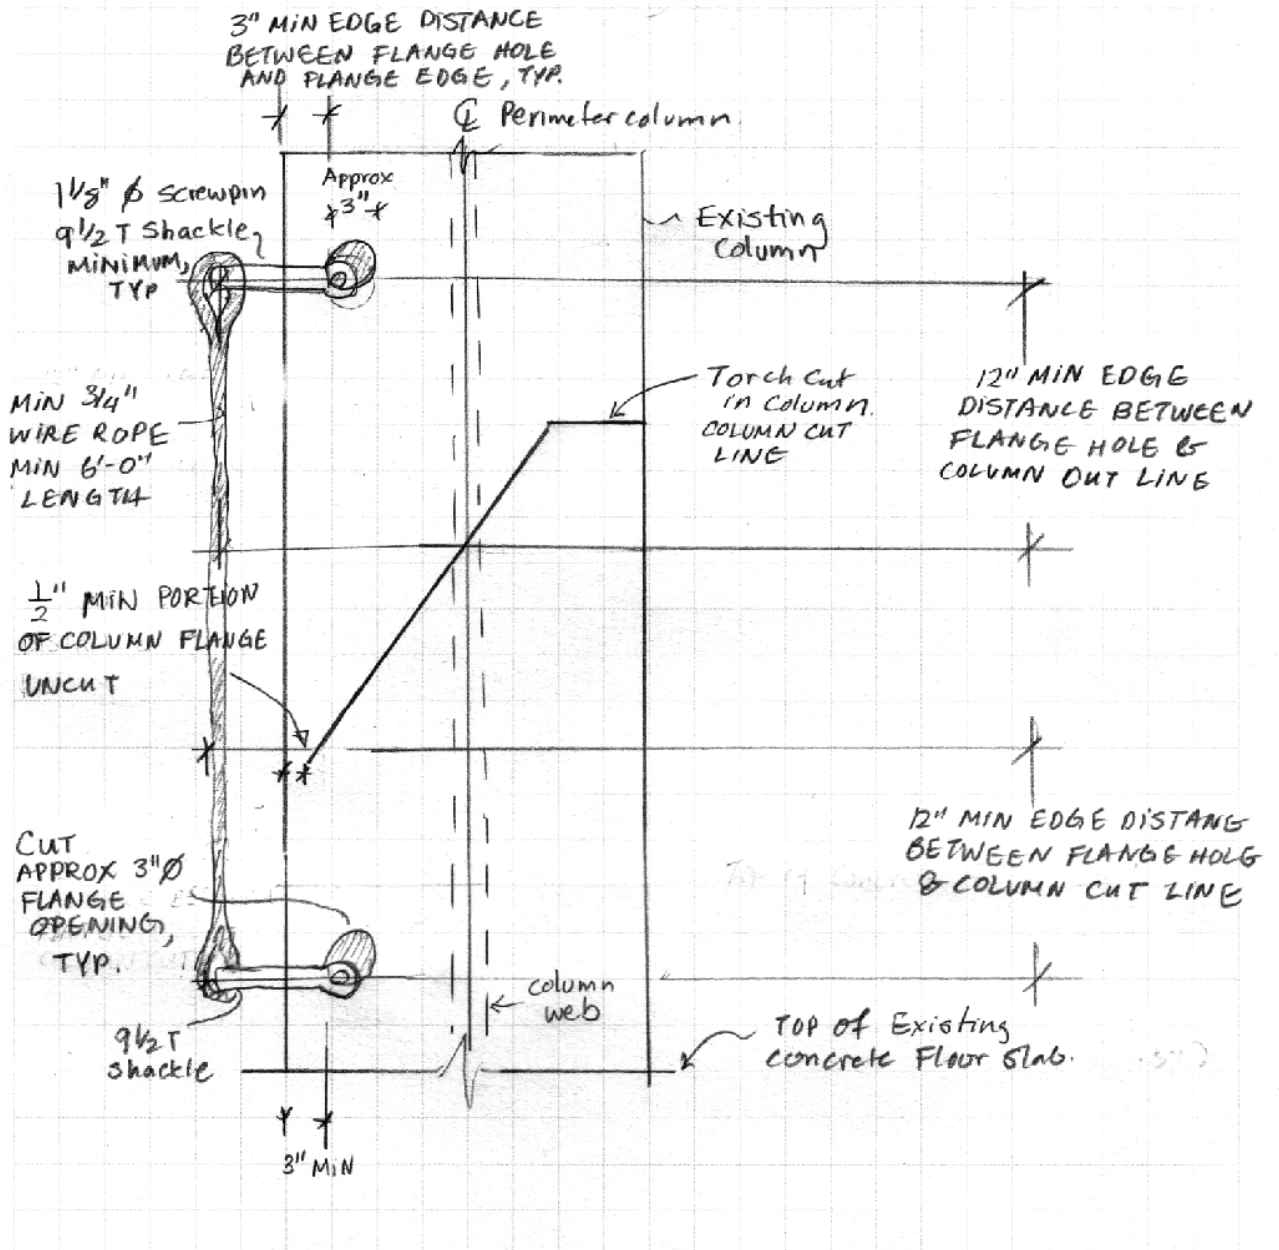 3" MIN EDGE DISTANCE
BETWEEN FLANGE HOLE
AND FLANGE EDGE, TYP.
℄ Perimeter column.
1 1/8" ϕ screwpin
9 1/2 T Shackle
MINIMUM,
TYP
Approx
3"
Existing
Column
MIN 3/4"
WIRE ROPE
MIN 6'-0"
LENGTH
Torch Cut
in Column.
COLUMN CUT
LINE
12" MIN EDGE
DISTANCE BETWEEN
FLANGE HOLE &
COLUMN OUT LINE
1/2" MIN PORTION
OF COLUMN FLANGE
UNCUT
CUT
APPROX 3"Ø
FLANGE
OPENING,
TYP.
12" MIN EDGE DISTANG
BETWEEN FLANGE HOLG
& COLUMN CUT LINE
column
web
9 1/2 T
Shackle
TOP of Existing
concrete Floor Slab.
3" MIN